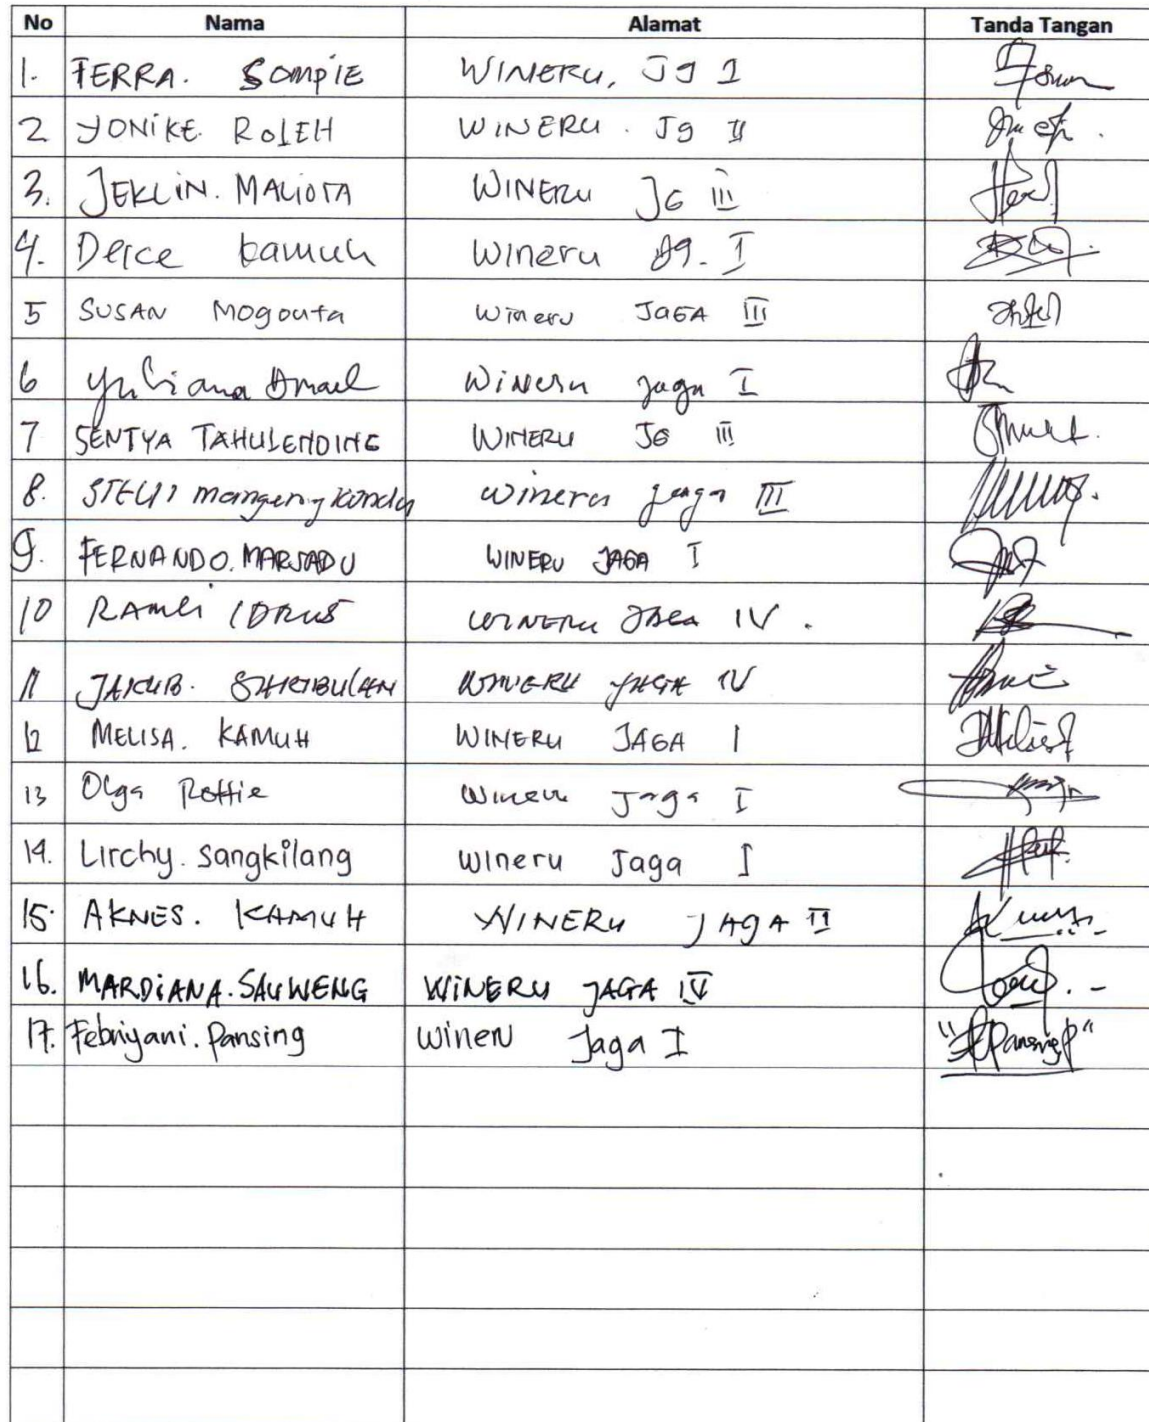 No Nama Alamat Tanda Tangan
1. FERRA. SOMPIE WINERU, Jg I
2 YONIKE ROLEH WINERU. Jg II
3. JEKLIN. MALIOTA WINERU JG III
4. Deice kamuh Wineru Jg. I
5 SUSAN Mogouta Wineru JAGA III
6 Yuliana Amael Wineru jaga I
7 SENTYA TAHULENDING WINERU JG III
8. STELLI mangerongkonda Wineru jaga III
9. FERNANDO. MARSADU WINERU JAGA I
10 RAMLI IDRUS WINERU JAGA IV.
11 JAKUB. WINERU JAGA IV
12 MELISA. KAMUH WINERU JAGA I
13 Olga Rottie Wineru Jaga I
14. Lirchy. Sangkilang Wineru Jaga I
15. AKNES. KAMUH WINERU JAGA II
16. MARDIANA. SAUWENG WINERU JAGA IV
17. Febriyani. Pansing Wineru Jaga I